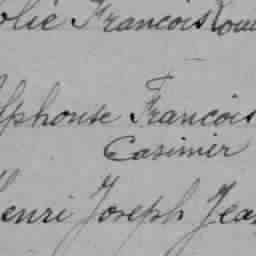 François
Alphonse François
Casimir
Henri Joseph Jean